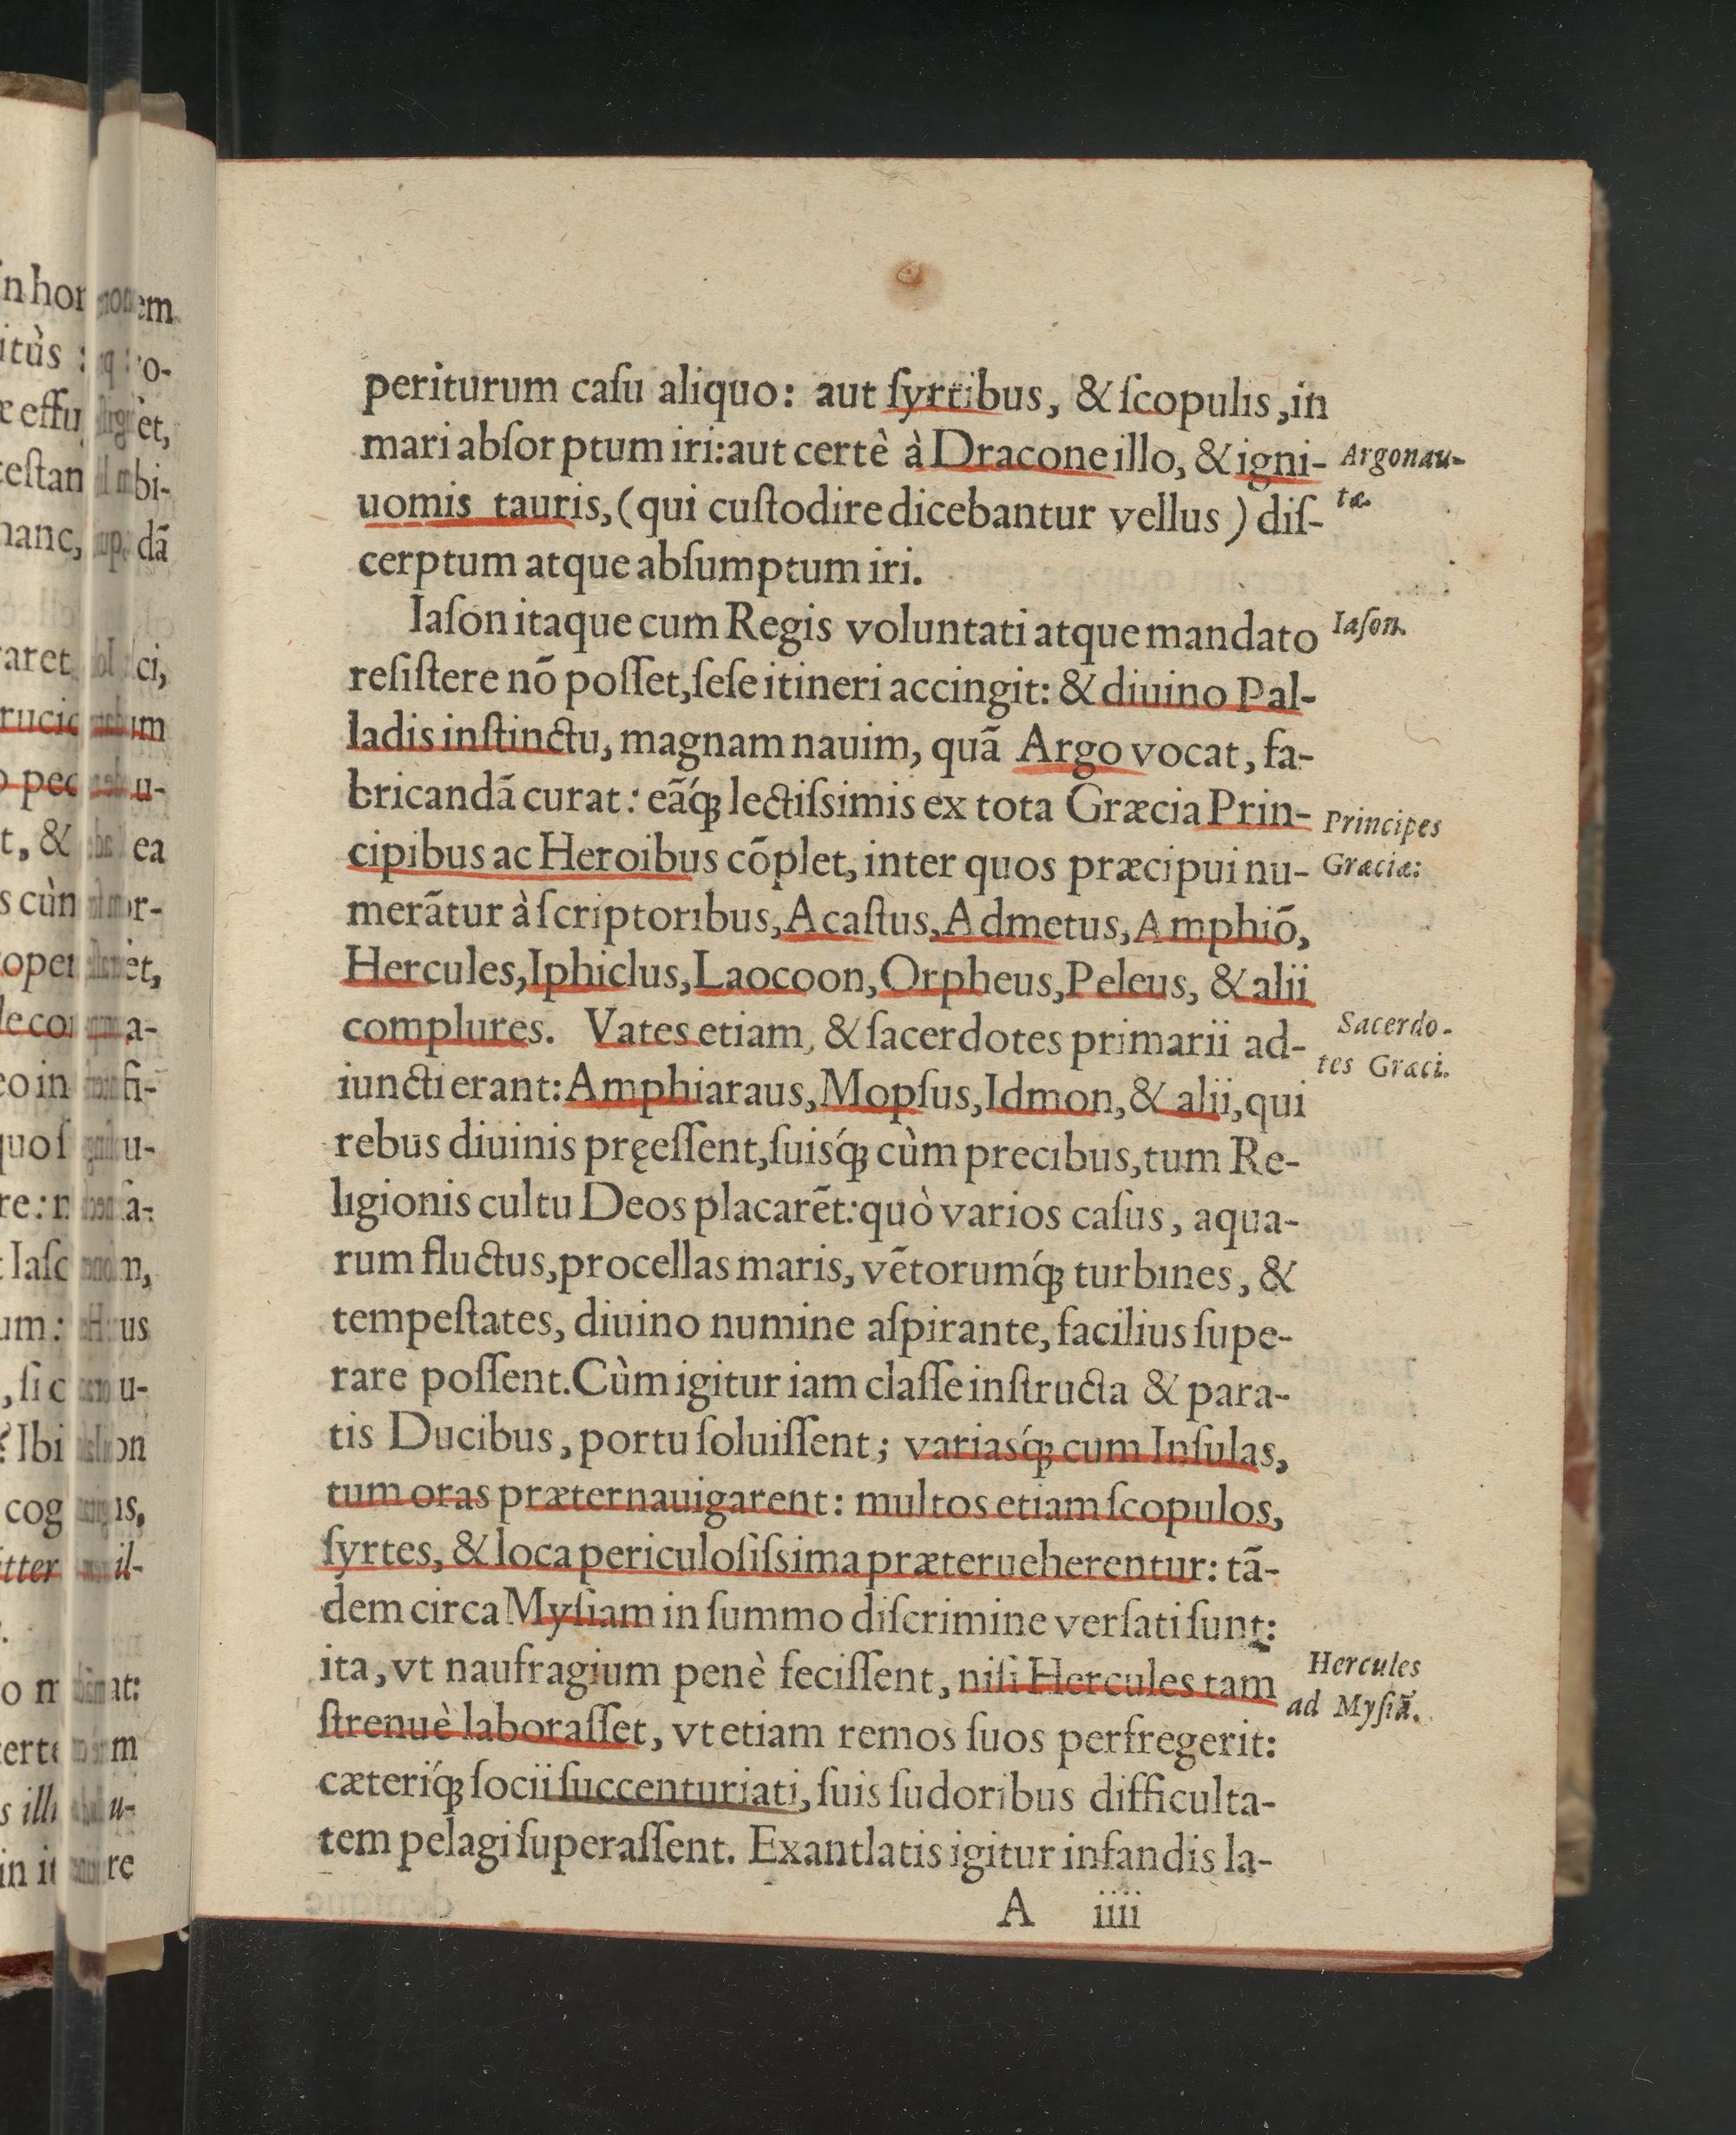 periturum caſu aliquo: aut ſyrtibus, & ſcopulis, in
mari abſorptum iri: aut certè à Dracone illo, & igni-
uomis tauris, (qui cuſtodire dicebantur vellus) diſ-
cerptum atque abſumptum iri.
Iaſon itaque cum Regis voluntati atque mandato
reſiſtere nõ poſſet, ſeſe itineri accingit: & diuino Pal-
ladis inſtinctu, magnam nauim, quã Argo vocat, fa-
bricandã curat: eãq́; lectiſsimis ex tota Græcia Prin-
cipibus ac Heroibus cõplet, inter quos præcipui nu-
merãtur à ſcriptoribus, Acaſtus, Admetus, Amphiõ,
Hercules, Iphiclus, Laocoon, Orpheus, Peleus, & alii
complures. Vates etiam, & ſacerdotes primarii ad-
iuncti erant: Amphiaraus, Mopſus, Idmon, & alii, qui
rebus diuinis pręeſſent, ſuisq́; cùm precibus, tum Re-
ligionis cultu Deos placarẽt: quò varios caſus, aqua-
rum fluctus, procellas maris, vẽtorumq́; turbines, &
tempeſtates, diuino numine aſpirante, facilius ſupe-
rare poſſent. Cùm igitur iam claſſe inſtructa & para-
tis Ducibus, portu ſoluiſſent; variasq́; cum Inſulas,
tum oras præternauigarent: multos etiam ſcopulos,
ſyrtes, & loca periculoſiſsima præterueherentur: tã-
dem circa Myſiam in ſummo diſcrimine verſati ſunt:
ita, vt naufragium penè feciſſent, niſi Hercules tam
ſtrenuè laboraſſet, vt etiam remos ſuos perfregerit:
cæteriq́; ſocii ſuccenturiati, ſuis ſudoribus difficulta-
tem pelagi ſuperaſſent. Exantlatis igitur infandis la-
A iiii
Argonau-
tæ.
Iaſon.
Principes
Græciæ:
Sacerdo-
tes Græci.
Hercules
ad Myſiã.